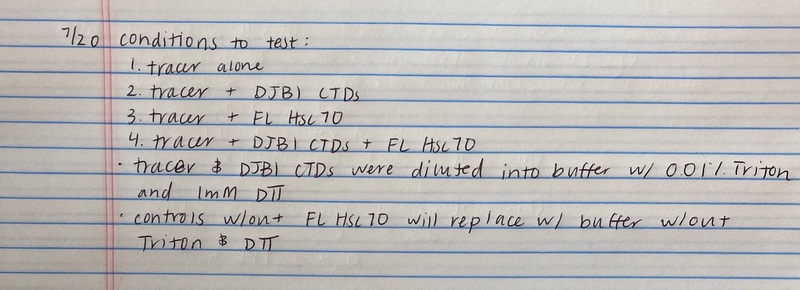 7/20 conditions to test:
1. tracer alone
2. tracer + DJB1 CTDs
3. tracer + FL Hsc70
4. tracer + DJB1 CTDs + FL Hsc70
· tracer & DJB1 CTDs were diluted into buffer w/ 0.01% Triton
and 1mM DTT
· controls w/out FL Hsc70 will replace w/ buffer w/out
Triton & DTT